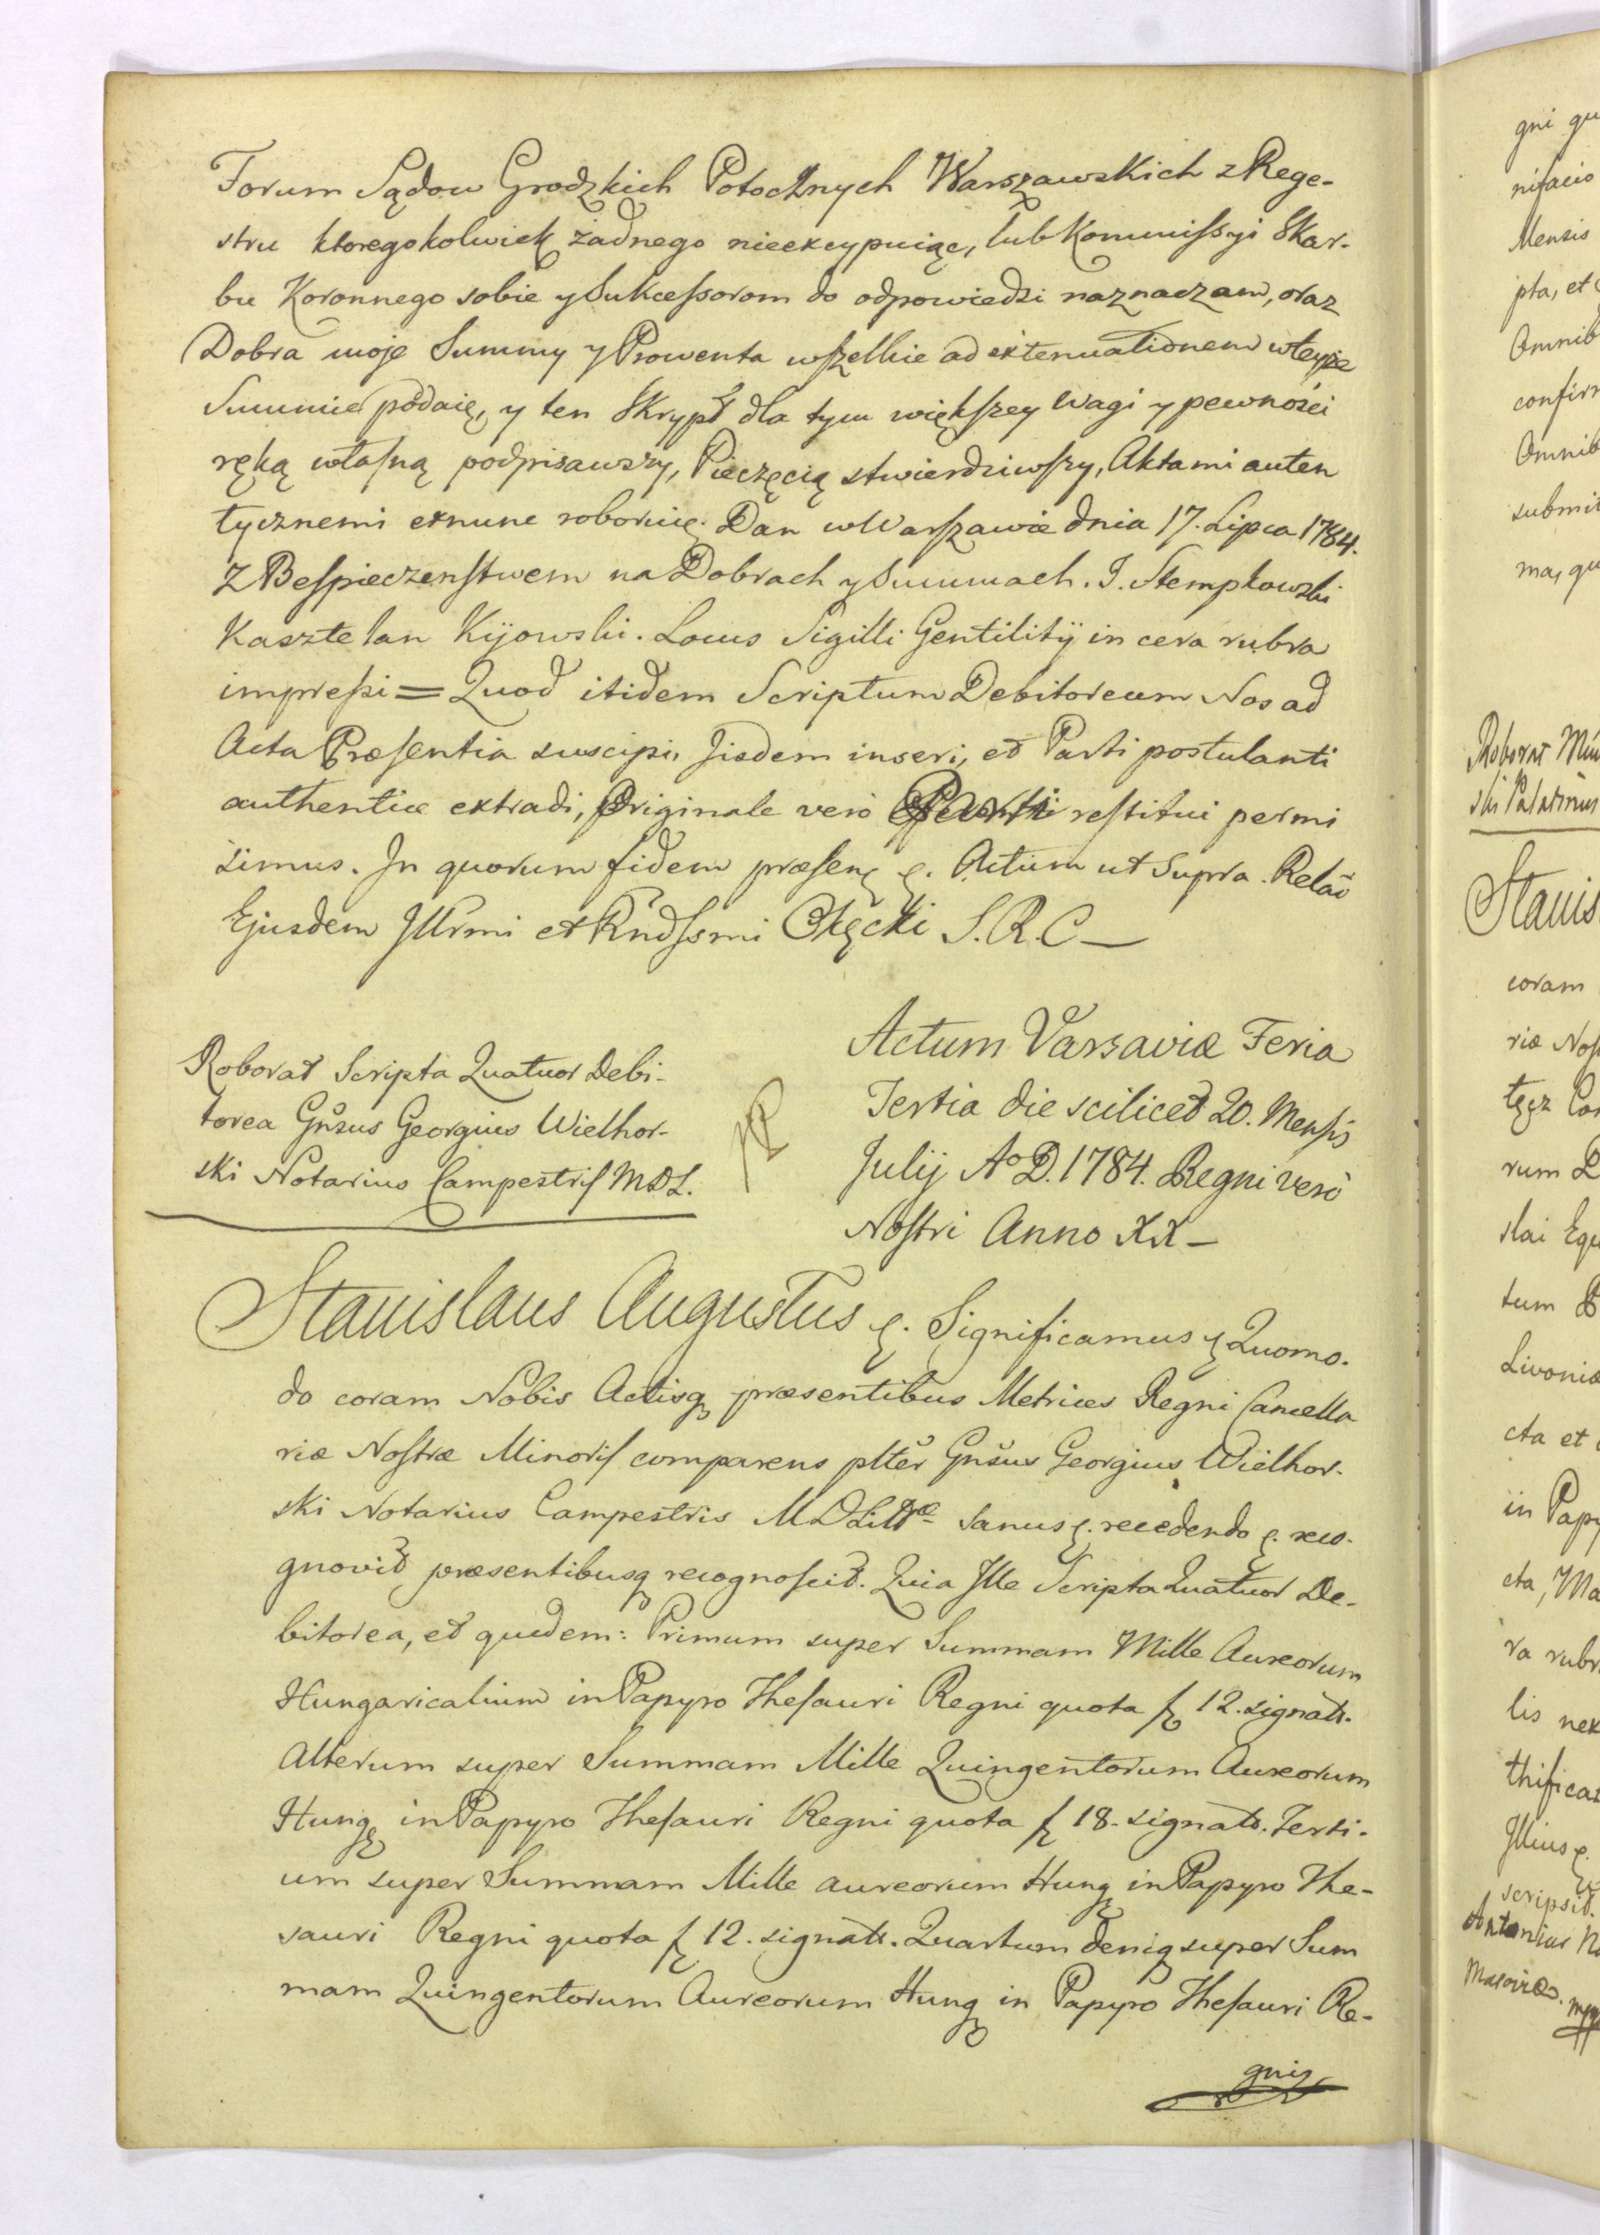 Forum Sądow Grodzkich Potocznych Warszawskich z Rege-
stru ktoregokolwiek żadnego nieexcypuiąc, lub Kommissyi Skar-
bu Koronnego sobie y Sukcessorom do odpowiedzi naznaczam, oraz
Dobra moje Summy y Prowenta wszelkie ad extenuationem wteyże
Summie podaię, y ten Skrypt dla tym większey Wagi y pewności
ręką własną podpisawszy, Pieczęcią stwierdziwszy, Aktami auten
tycznemi exnunc roboruię. Dan w Warszawie dnia 17. Lipca 1784.
Z Bespieczenstwem na Dobrach y Summach. J. Stempkowski
Kasztelan Kijowski. Locus Sigilli Gentilitÿ in cera rubra
impressi = Quod itidem Scriptum Debitoreum Nos ad
Acta Præsentia suscipi, Jisdem inseri, et Parti postulanti
authentice extradi, Originale verò Parti restitui permi
simus. In quorum fidem præsen ę. Actum ut Supra. Relaõ
Ejusdem Jllrmi et Rndssmi Okęcki S. R. C —
Roborat Scripta Quatuor Debi-
torea Gñsus Georgius Wielhor-
ski Notarius Campestris M D L.
Actum Varsaviæ Feria
Tertia die scilicet 20. Mensis
Julij Aº D. 1784. Regni verò
Nostri Anno XX —
Stanislaus Augustus ę. Significamus ę Quomo-
do coram Nobis Actisq præsentibus Metrices Regni Cancella
riæ Nostræ Minoris comparens plter Gñsus Georgius Wielhor-
ski Notarius Campestris M D Littæ Sanus ę. recedendo ę. reco-
gnovit præsentibusq recognoscit. Quia Jlle Scripta Quatuor De-
bitorea, et quidem: Primum super Summam Mille Aureorum
Hungaricalium in Papyro Thesauri Regni quota f 12. signat.
Alterum super Summam Mille Quingentorum Aureorum
Hung in Papyro Thesauri Regni quota f 18. signat. Terti-
um super Summam Mille aureorum Hung in Papyro The-
sauri Regni quota f 12. signat. Quartum deniq super Sum
mam Quingentorum Aureorum Hung in Papyro Thesauri Re-
gni
gni
Mensis
pta, et
Omnib
submit
Stanis
coram
rum
Livoniæ
cta et
in Papy
lis nex
scripsit.
Antonius